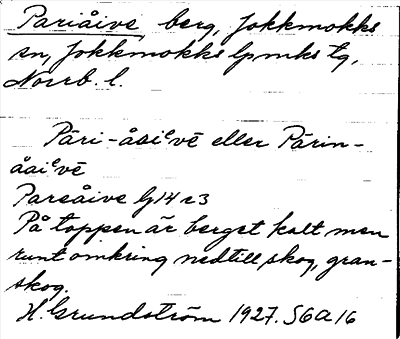 Pariåive, berg, Jokkmokks
sn, Jokkmokks lpmks tg,
Norrb. l.
Pāri-åāiᵉvē eller Pārin-
åāiᵉvē
Pareåive lj 14 r 3
På toppen är berget kalt men
runt omkring nedtill skog, gran-
skog.
H. Grundström 1927. S6a 16